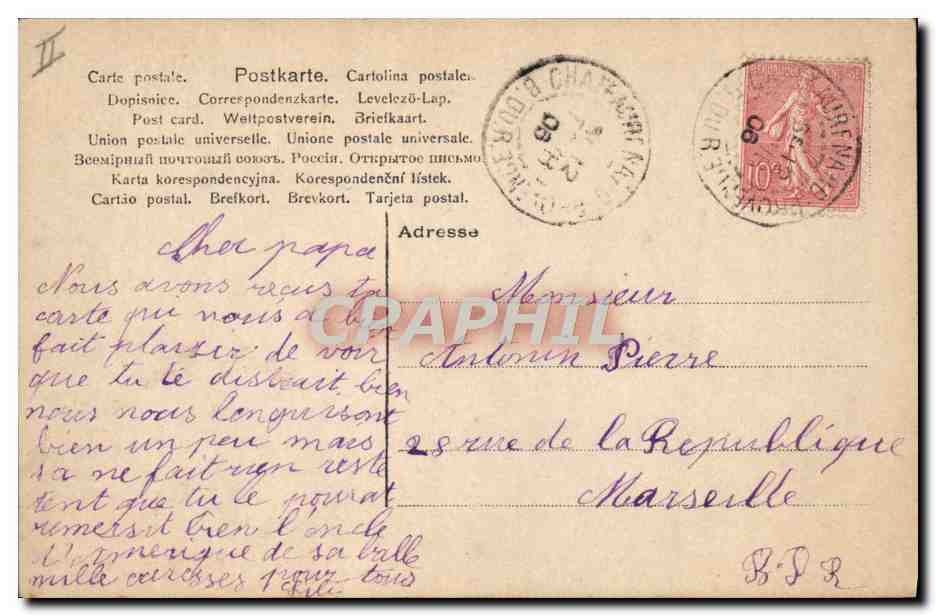 II
Carte postale. Postkarte. Cartolina postale.
Dopisnice. Correspondenzkarte. Levelező-Lap.
Post card. Weltpostverein. Briefkaart.
Union postale universelle. Unione postale universale.
Всемірный почтовый союзъ. Россія. Открытое письмо
Karta korespondencyjna. Korespondenční lístek.
Cartão postal. Brefkort. Brevkort. Tarjeta postal.
06
06
10
Adresse
Cher papa
Nous avons reçus ta
carte qui nous a bien
fait plaiser de voir
que tu te distrait bien
nous nous lenguisont
bien un peu mais
sa ne fait rien reste
tent que tu le pourat
remessit bien l'oncle
d'Amerique de sa balle
mille caresses pour tous
Monsieur
Antonin Pierre
28 rue de la Republique
Marseille
B.D.R
CPAPHIL